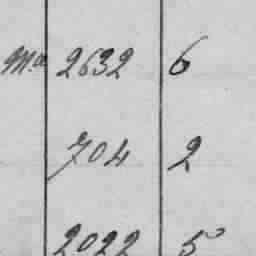 Ma 2632 6
704 2
2022 5